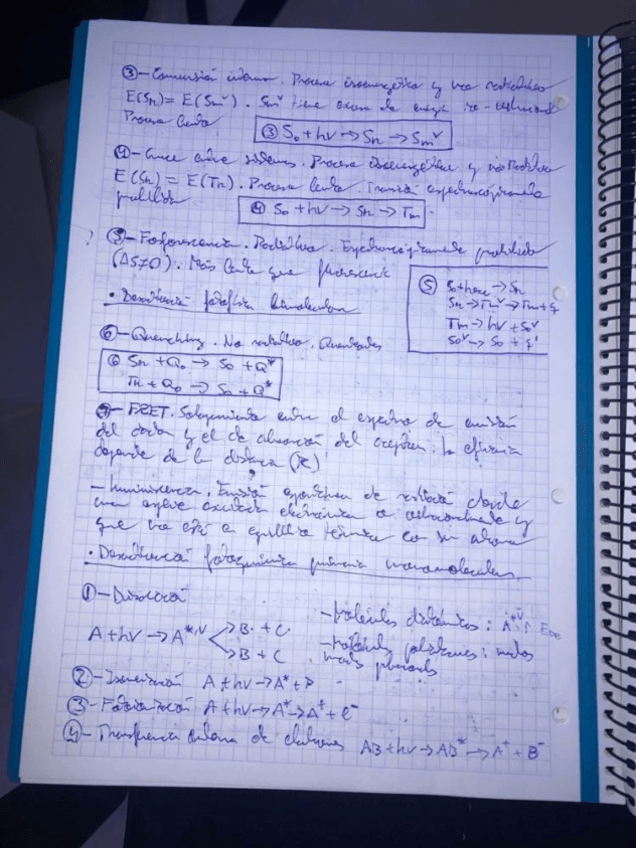 ③- Conversión interna. Proceso isoenergético y no radiativo
E(Sn) = E(Smᵛ). Smᵛ tiene exceso de energía
Proceso lento
③ S₀ + hν → Sn → Smᵛ
④- Cruce entre sistemas. Proceso isoenergético y no radiativo
E(Sn) = E(Tm). Proceso lento. Transición espectroscópicamente
prohibida
④ S₀ + hν → Sn → Tm
⑤- Fosforescencia. Radiativo. Espectroscópicamente prohibido
(ΔS≠0). Más lento que fluorescencia
⑤ S₀ + → Sn
Sn → Tmᵛ → Tm + q
Tm → hν + S₀ᵛ
S₀ᵛ → S₀ + q'
• Desactivación fotofísica bimolecular
⑥- Quenching. No radiativo.
⑥ Sn + Q₀ → S₀ + Q*
Tn + Q₀ → S₀ + Q*
- FRET. Solapamiento entre el espectro de emisión
del dador y el de absorción del aceptor. La eficiencia
depende de la distancia (R)
- Luminiscencia. Emisión espontánea de radiación desde
una especie excitada electrónica o vibracionalmente y
que no está en equilibrio térmico con su
• Desactivación fotoquímica primaria monomolecular.
①- Disociación
A + hν → A*,ᵛ
B· + C·
B + C
- Moléculas diatómicas:
- Moléculas poliatómicas:
más
②- Isomerización A + hν → A* + P
③- Fotoionización A + hν → A* → A⁺ + e⁻
④- Transferencia interna de electrones AB + hν → AB* → A⁺ + B⁻